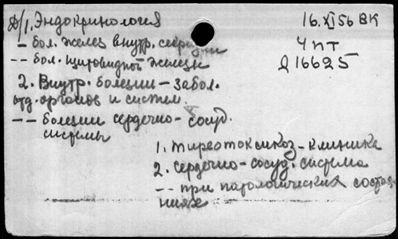 Д/1. Эндокринология
16.XI 56 ВК
– бол. желез внутр. секреции
4 пт
-- бол. щитовидной железы
Д 16625
2. Внутр. болезни – забол.
отд. органов и систем.
-- болезни сердечно-сосуд.
системы
1. тиреотоксикоз – клиника
2. сердечно-сосуд. система
-- при патологических состоя-
ниях